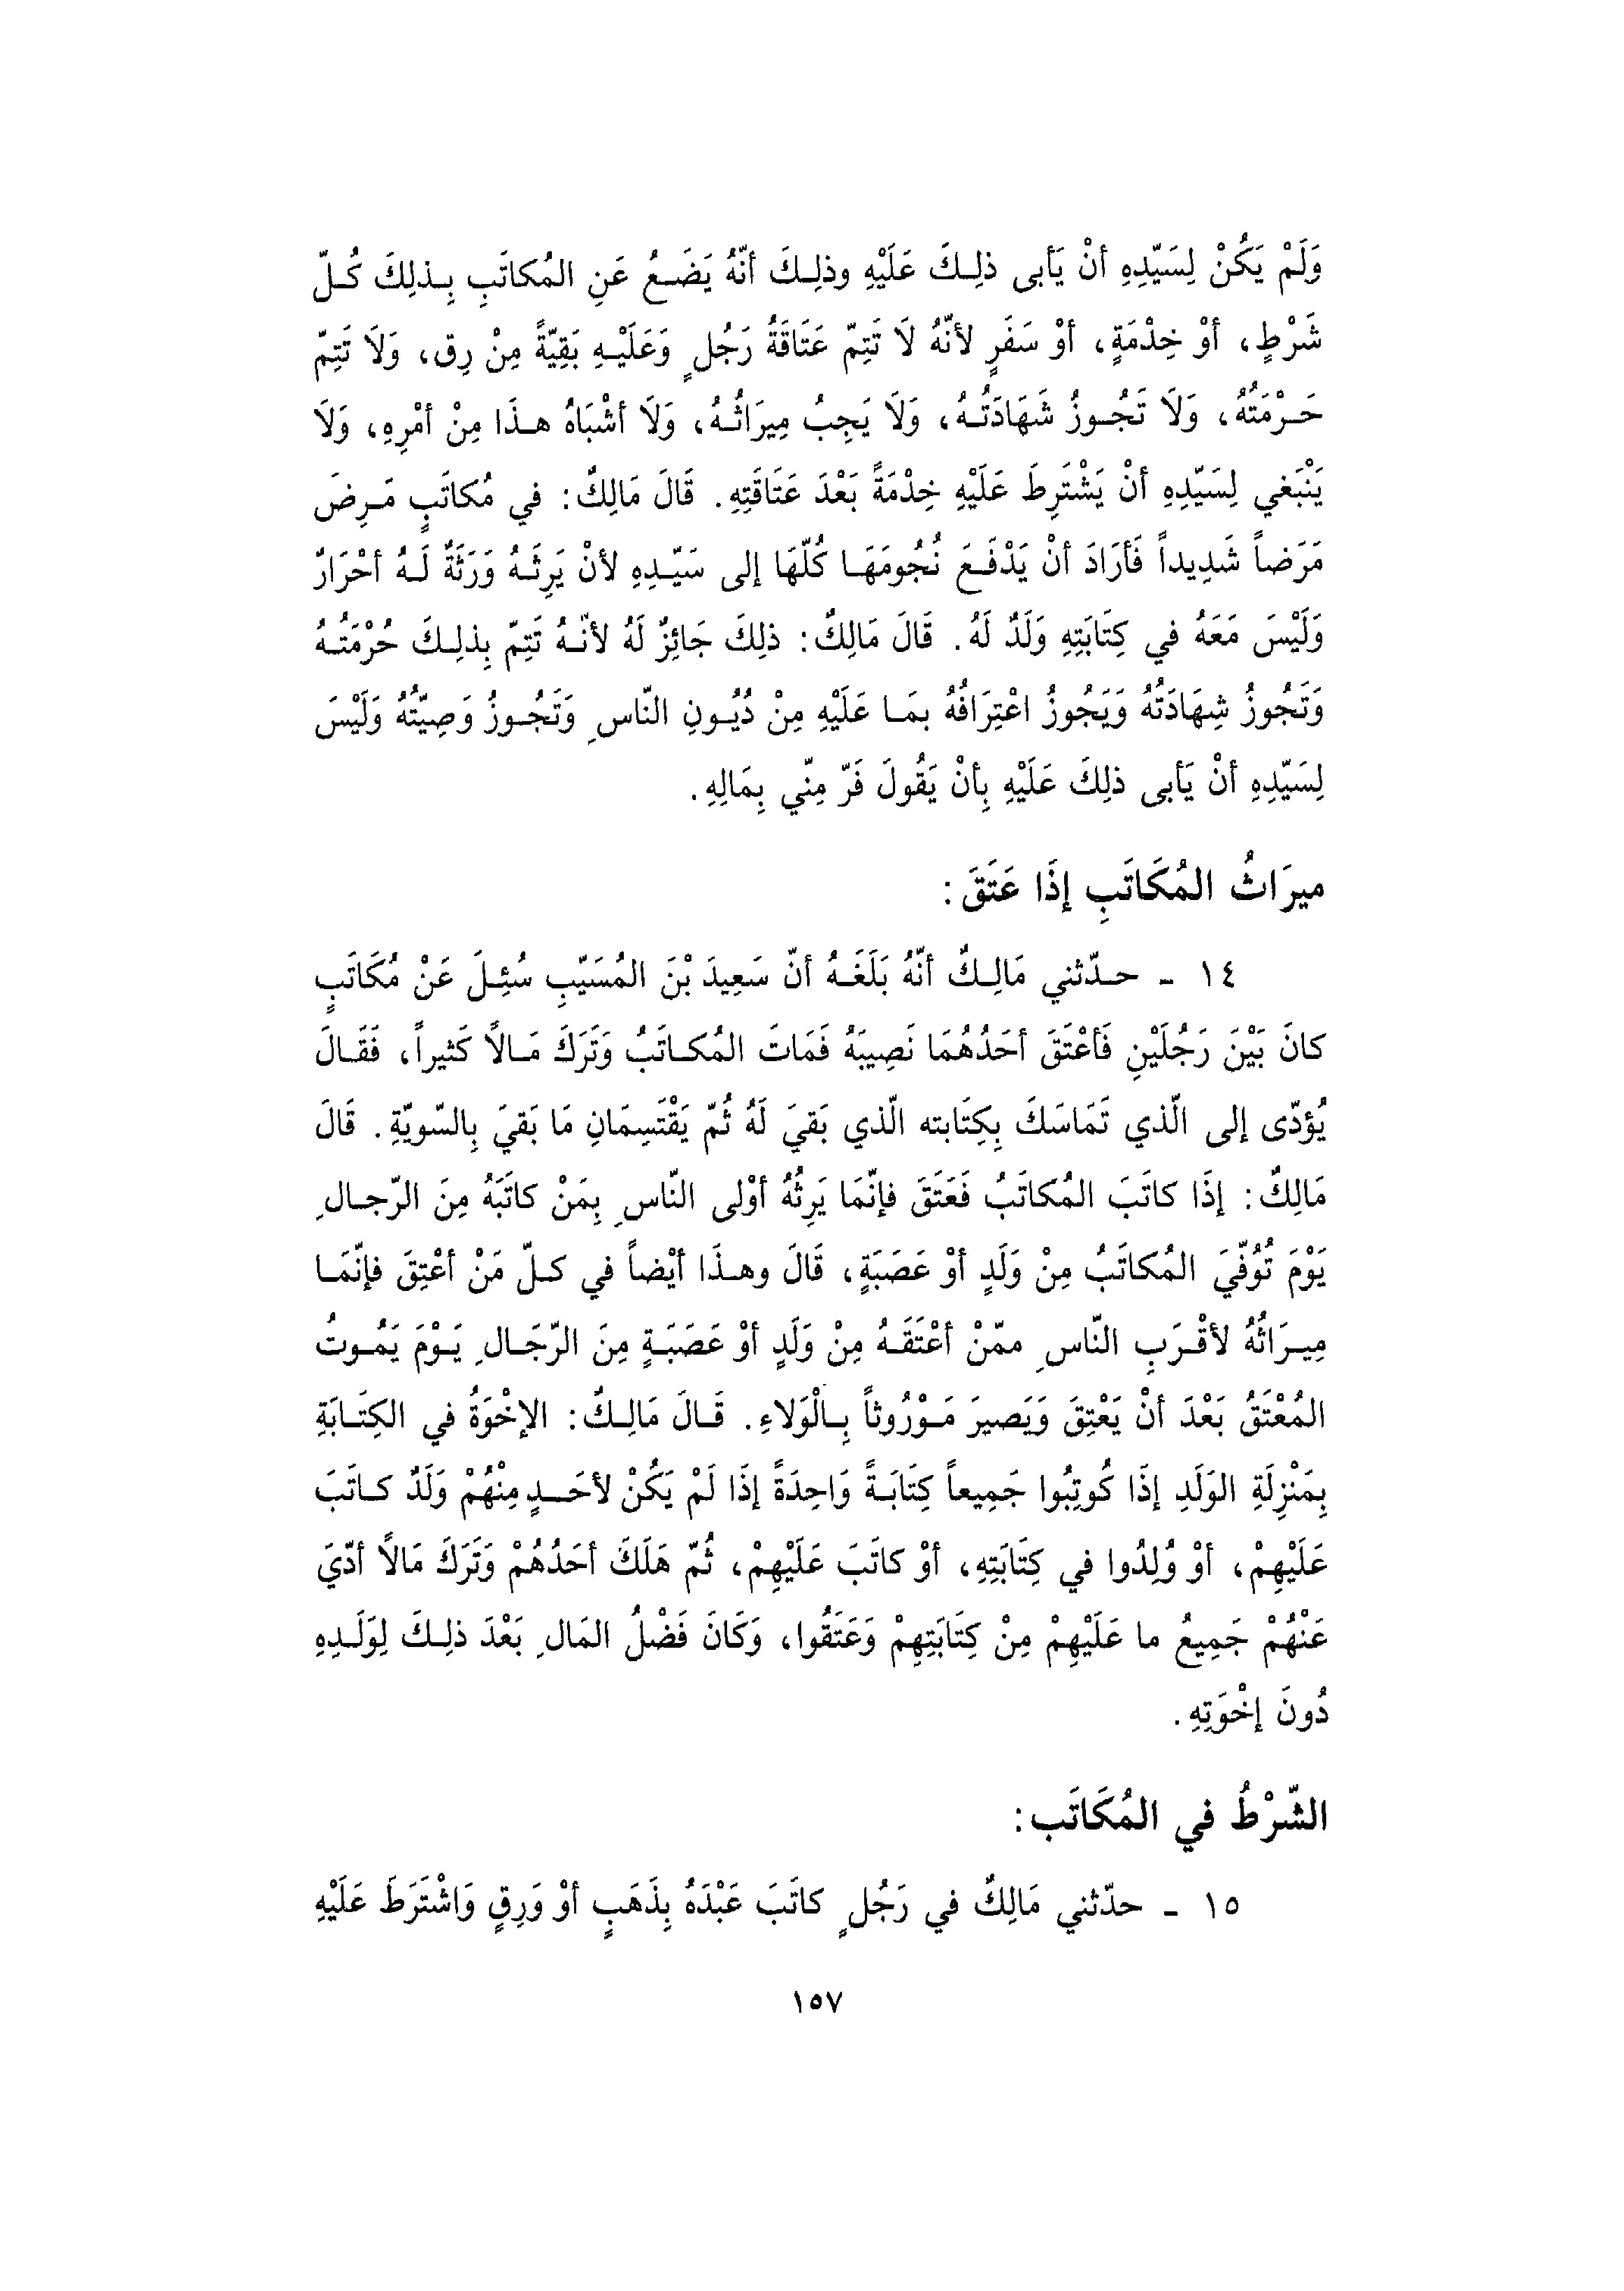 وَلَمْ يَكُنْ لِسَيِّدِهِ أنْ يَأبى ذلِكَ عَلَيْهِ وذلِكَ أنّهُ يَضَعُ عَنِ المُكاتَبِ بِذلِكَ كُلّ
شَرْطٍ، أوْ خِدْمَةٍ، أوْ سَفَرٍ لأنّهُ لَا تَتِمّ عَتَاقَةُ رَجُلٍ وَعَلَيْهِ بَقِيّةً مِنْ رِق، وَلَا تَتِمّ
حَرْمَتُهُ، وَلَا تَجُوزُ شَهَادَتُهُ، وَلَا يَجِبُ مِيرَاثُهُ، وَلَا أشْبَاهُ هذَا مِنْ أمْرِهِ، وَلَا
يَنْبَغي لِسَيّدِهِ أنْ يَشْتَرِطَ عَلَيْهِ خِدْمَةً بَعْدَ عَتَاقَتِهِ. قَالَ مَالِكٌ: في مُكاتَبٍ مَرِضَ
مَرَضاً شَدِيداً فَأرَادَ أنْ يَدْفَعَ نُجُومَهَا كُلّهَا إلى سَيّدِهِ لأنْ يَرِثَهُ وَرَثَةٌ لَهُ أحْرَارٌ
وَلَيْسَ مَعَهُ في كِتَابَتِهِ وَلَدٌ لَهُ. قَالَ مَالِكٌ: ذلِكَ جَائِزٌ لَهُ لأنّهُ تَتِمّ بِذلِكَ حُرْمَتُهُ
وَتَجُوزُ شِهَادَتُهُ وَيَجُوزُ اعْتِرَافُهُ بمَا عَلَيْهِ مِنْ دُيُونِ النّاسِ وَتَجُوزُ وَصِيّتُهُ وَلَيْسَ
لِسَيّدِهِ أنْ يَأبى ذلِكَ عَلَيْهِ بِأنْ يَقُولَ فَرّ مِنّي بِمَالِهِ.
ميرَاثُ المُكَاتَبِ إذَا عَتَقَ:
١٤ - حدّثني مَالِكٌ أنّهُ بَلَغَهُ أنّ سَعِيدَ بْنَ المُسَيّبِ سُئِلَ عَنْ مُكَاتَبٍ
كانَ بَيْنَ رَجُلَيْنِ فَأعْتَقَ أحَدُهُمَا نَصِيبَهُ فَمَاتَ المُكاتَبُ وَتَرَكَ مَالاً كَثيراً، فَقَالَ
يُؤدّى إلى الّذي تَمَاسَكَ بِكِتَابته الّذي بَقيَ لَهُ ثُمّ يَقْتَسِمَانِ مَا بَقيَ بِالسّويّةِ. قَالَ
مَالِكٌ: إذَا كاتَبَ المُكاتَبُ فَعَتَقَ فإنّمَا يَرِثُهُ أوْلى النّاسِ بِمَنْ كاتَبَهُ مِنَ الرّجالِ
يَوْمَ تُوُفّيَ المُكاتَبُ مِنْ وَلَدٍ أوْ عَصَبَةٍ، قَالَ وهذَا أيْضاً في كلّ مَنْ أعْتِقَ فإنّمَا
مِيرَاثُهُ لأقْرَبِ النّاسِ ممّنْ أعْتَقَهُ مِنْ وَلَدٍ أوْ عَصَبَةٍ مِنَ الرّجَالِ يَوْمَ يَمُوتُ
المُعْتَقُ بَعْدَ أنْ يَعْتِقَ وَيَصيرَ مَوْرُوثاً بِالْوَلاءِ. قَالَ مَالِكٌ: الإخْوَةُ في الكِتَابَةِ
بِمَنْزِلَةِ الوَلَدِ إذَا كُوتِبُوا جَمِيعاً كِتَابَةً وَاحِدَةً إذَا لَمْ يَكُنْ لأحَدٍ مِنْهُمْ وَلَدٌ كاتَبَ
عَلَيْهِمْ، أوْ وُلِدُوا في كِتَابَتِهِ، أوْ كاتَبَ عَلَيْهِمْ، ثُمّ هَلَكَ أحَدُهُمْ وَتَرَكَ مَالاً أدّيَ
عَنْهُمْ جَمِيعُ ما عَلَيْهِمْ مِنْ كِتَابَتِهِمْ وَعَتَقُوا، وَكَانَ فَضْلُ المَالِ بَعْدَ ذلِكَ لِوَلَدِهِ
دُونَ إخْوَتِهِ.
الشّرْطُ في المُكَاتَب:
١٥ - حدّثني مَالِكٌ في رَجُلٍ كاتَبَ عَبْدَهُ بِذَهَبٍ أوْ وَرِقٍ وَاشْتَرَطَ عَلَيْهِ
١٥٧